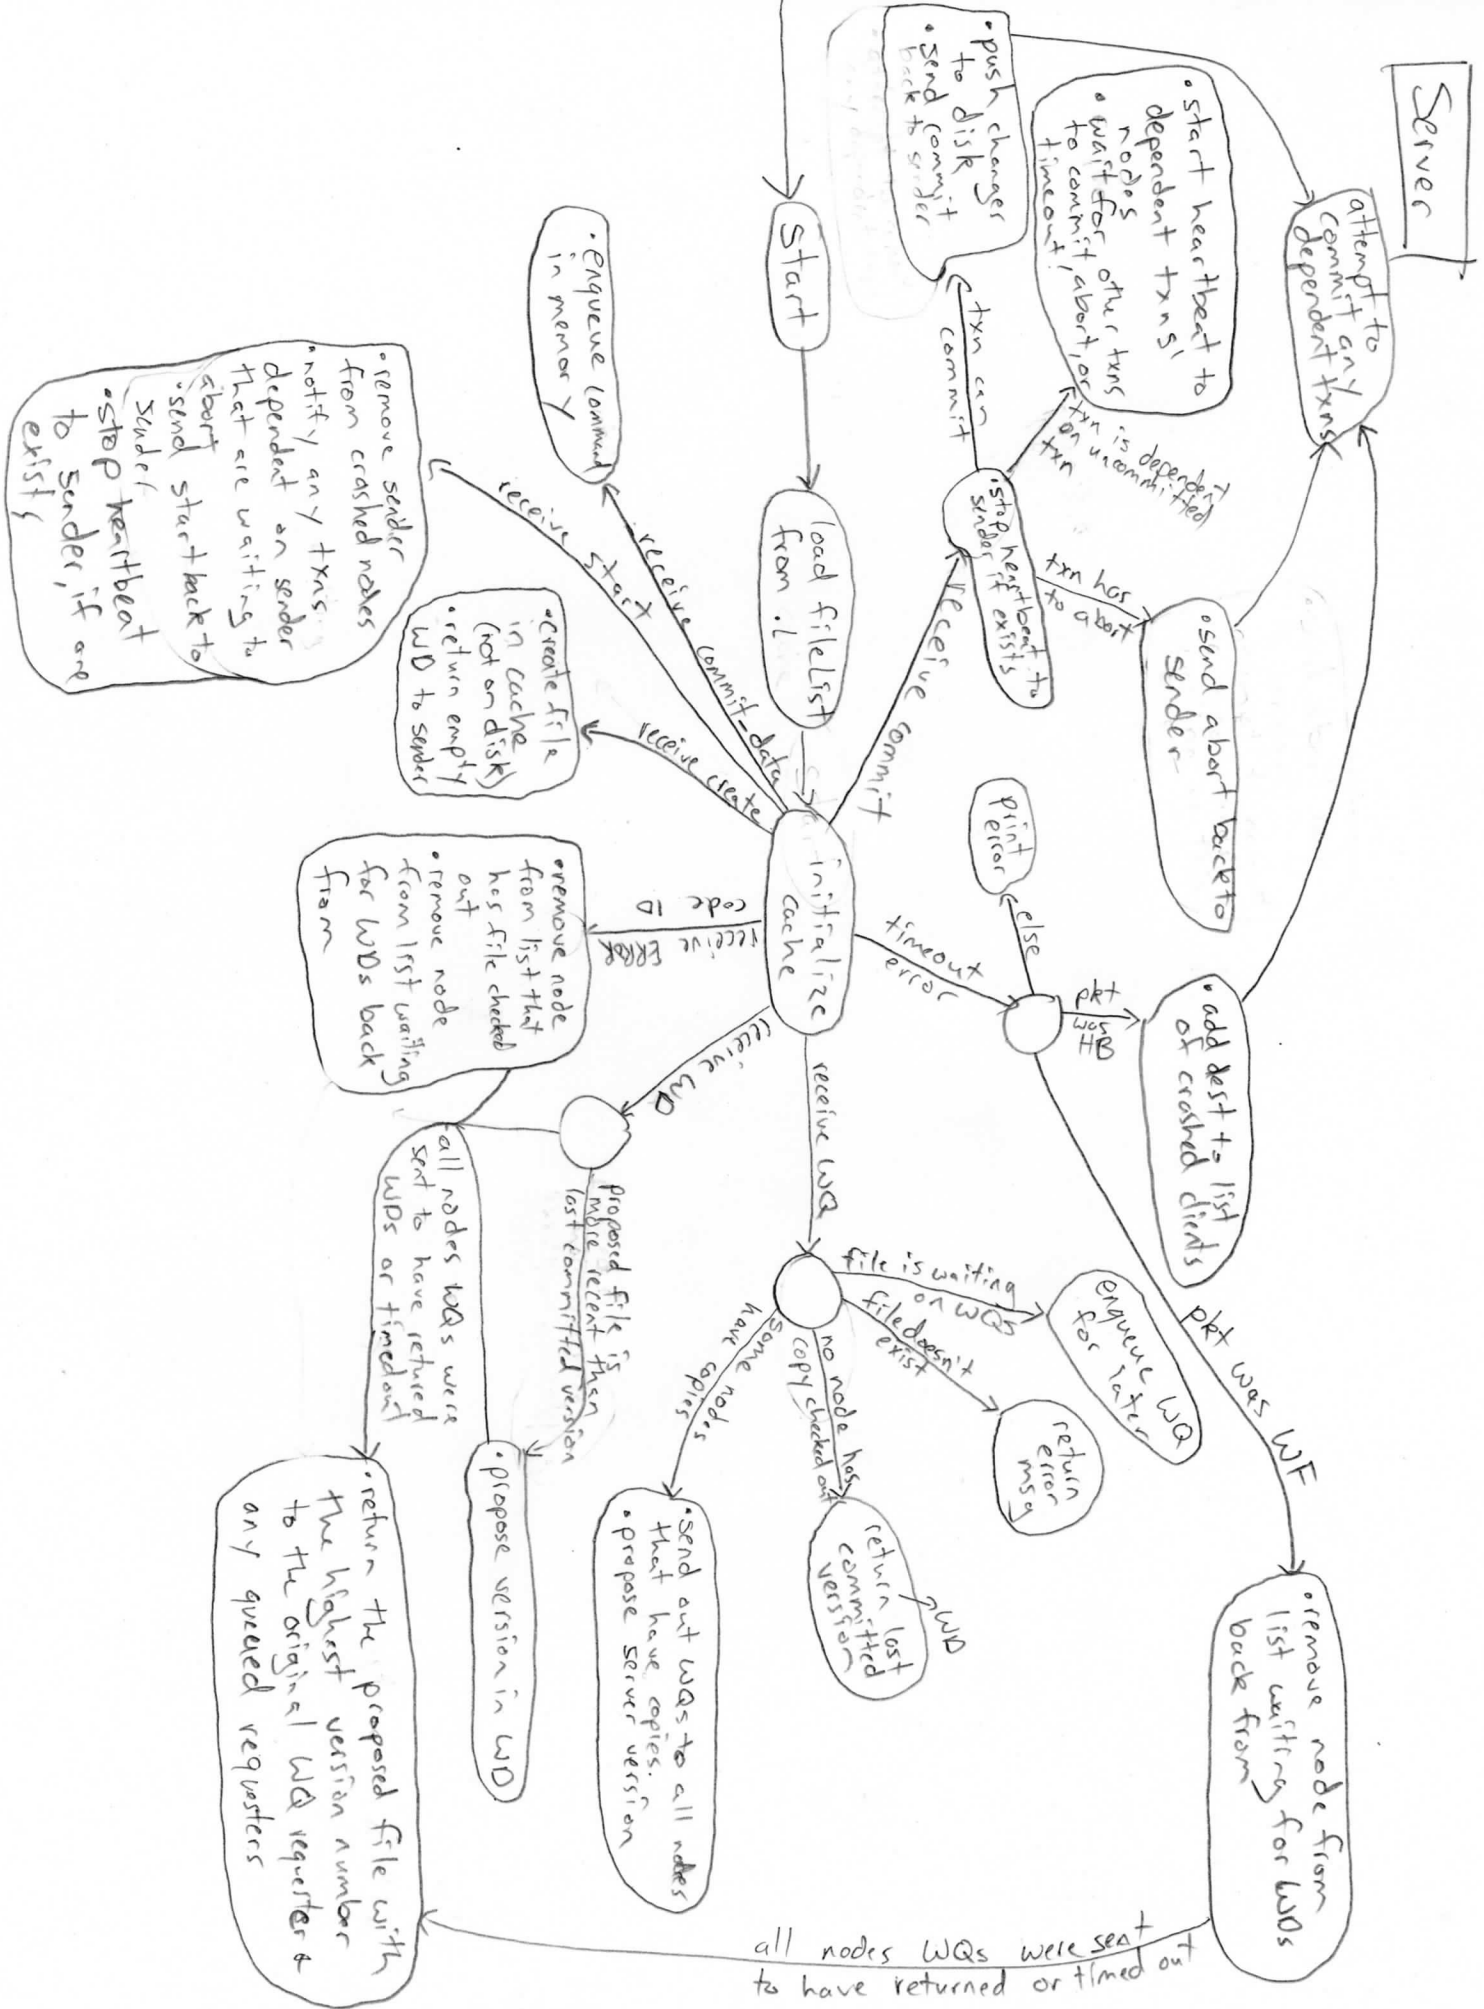 Server
attempt to
commit any
dependent txns
• start heartbeat to
dependent txns'
nodes
• wait for other txns
to commit, abort, or
timeout
• push changes
to disk
• send commit
back to sender
txn can
commit
txn is dependent
on uncommitted
txn
• stop heartbeat to
sender if exists
txn has
to abort
• send abort back to
sender
receive commit
Start
load fileList
from .l
initialize
cache
• enqueue command
in memory
receive commit-data
receive start
• remove sender
from crashed nodes
• notify any txns
dependent on sender
that are waiting to
abort
• send start back to
sender
• stop heartbeat
to sender, if one
exists
receive create
• create file
in cache
(not on disk)
• return empty
WD to sender
receive ERROR
code 10
• remove node
from list that
has file checked
out
• remove node
from list waiting
for WDs back
from
timeout
error
else
print
error
pkt
was
HB
• add dest to list
of crashed clients
pkt was WF
• remove node from
list waiting for WDs
back from
receive WD
proposed file is
more recent than
last committed version
• propose version in WD
all nodes WQs were
sent to have retured
WDs or timedout
• return the proposed file with
the highest version number
to the original WQ requester &
any queued requesters
receive WQ
file is waiting
on WQs
enqueue WQ
for later
file doesn't
exist
return
error
msg
no node has
copy checked out
return last
committed
version
WD
some nodes
have copies
• send out WQs to all nodes
that have copies.
• propose server version
all nodes WQs were sent
to have returned or timed out